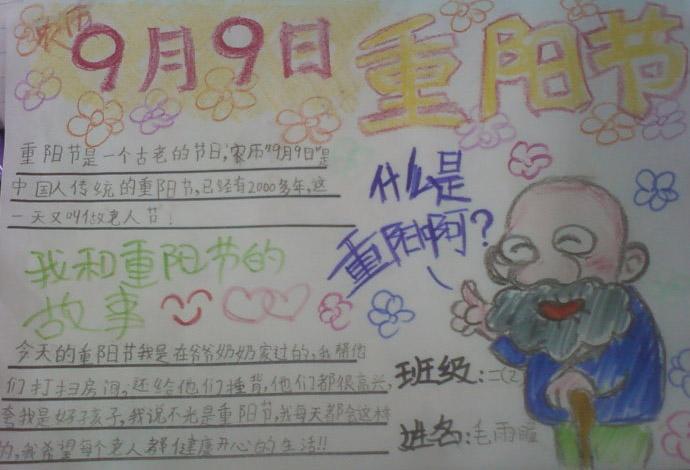 农历
9月9日
重阳节
重阳节是一个古老的节日,农历"9月9日"是
中国人传统的重阳节,已经有2000多年,这
一天又叫做老人节!
什么是
重阳啊?
我和重阳节的
故事
今天的重阳节我是在爷爷奶奶家过的,我帮他
们打扫房间,还给他们捶背,他们都很高兴,
夸我是好孩子,我说不光是重阳节,我每天都会这样
为,我希望每个老人都健康开心的生活!!
班级:二(2
姓名:毛雨暄